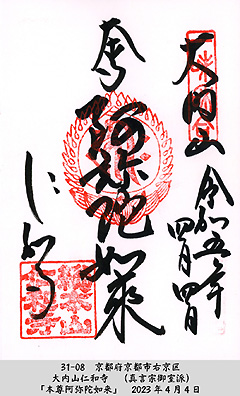 奉拝
大内山
令和五年
四月四日
阿弥陀如来
仁和寺
31-08 京都府京都市右京区
大内山仁和寺 (真言宗御室派)
「本尊阿弥陀如来」 2023年4月4日